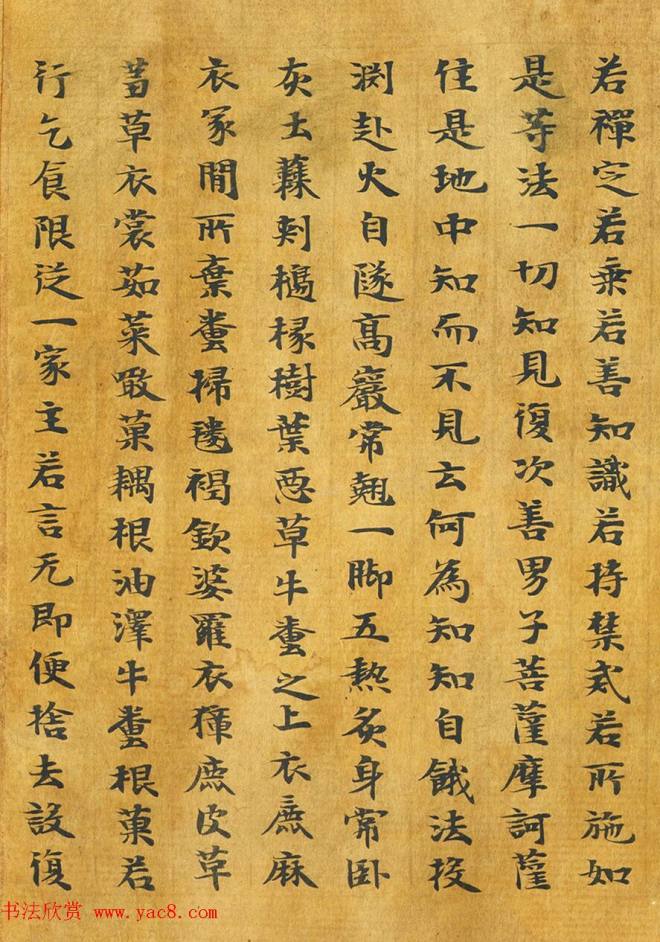 若禪定若乗若善知識若持禁戒若所施如
是等法一切知見復次善男子菩薩摩訶薩
住是地中知而不見云何為知知自餓法投
渕赴火自隧高巖常翹一脚五熱炙身常卧
灰土蕀刺椽樹葉惡草牛糞之上衣麁麻
衣冢間所棄糞掃氀褐欽婆羅衣獐鹿皮草
草衣裳茹菜噉菓耦根油澤牛糞根菓若
行乞食限從一家主若言无即便捨去設復
书法欣赏 www.yac8.com